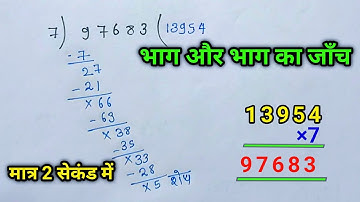 7) 97683 (13954
- 7
27
- 21
× 66
- 63
× 38
- 35
× 33
- 28
× 5 शेष
भाग और भाग का जाँच
13954
×7
97683
मात्र 2 सेकंड में